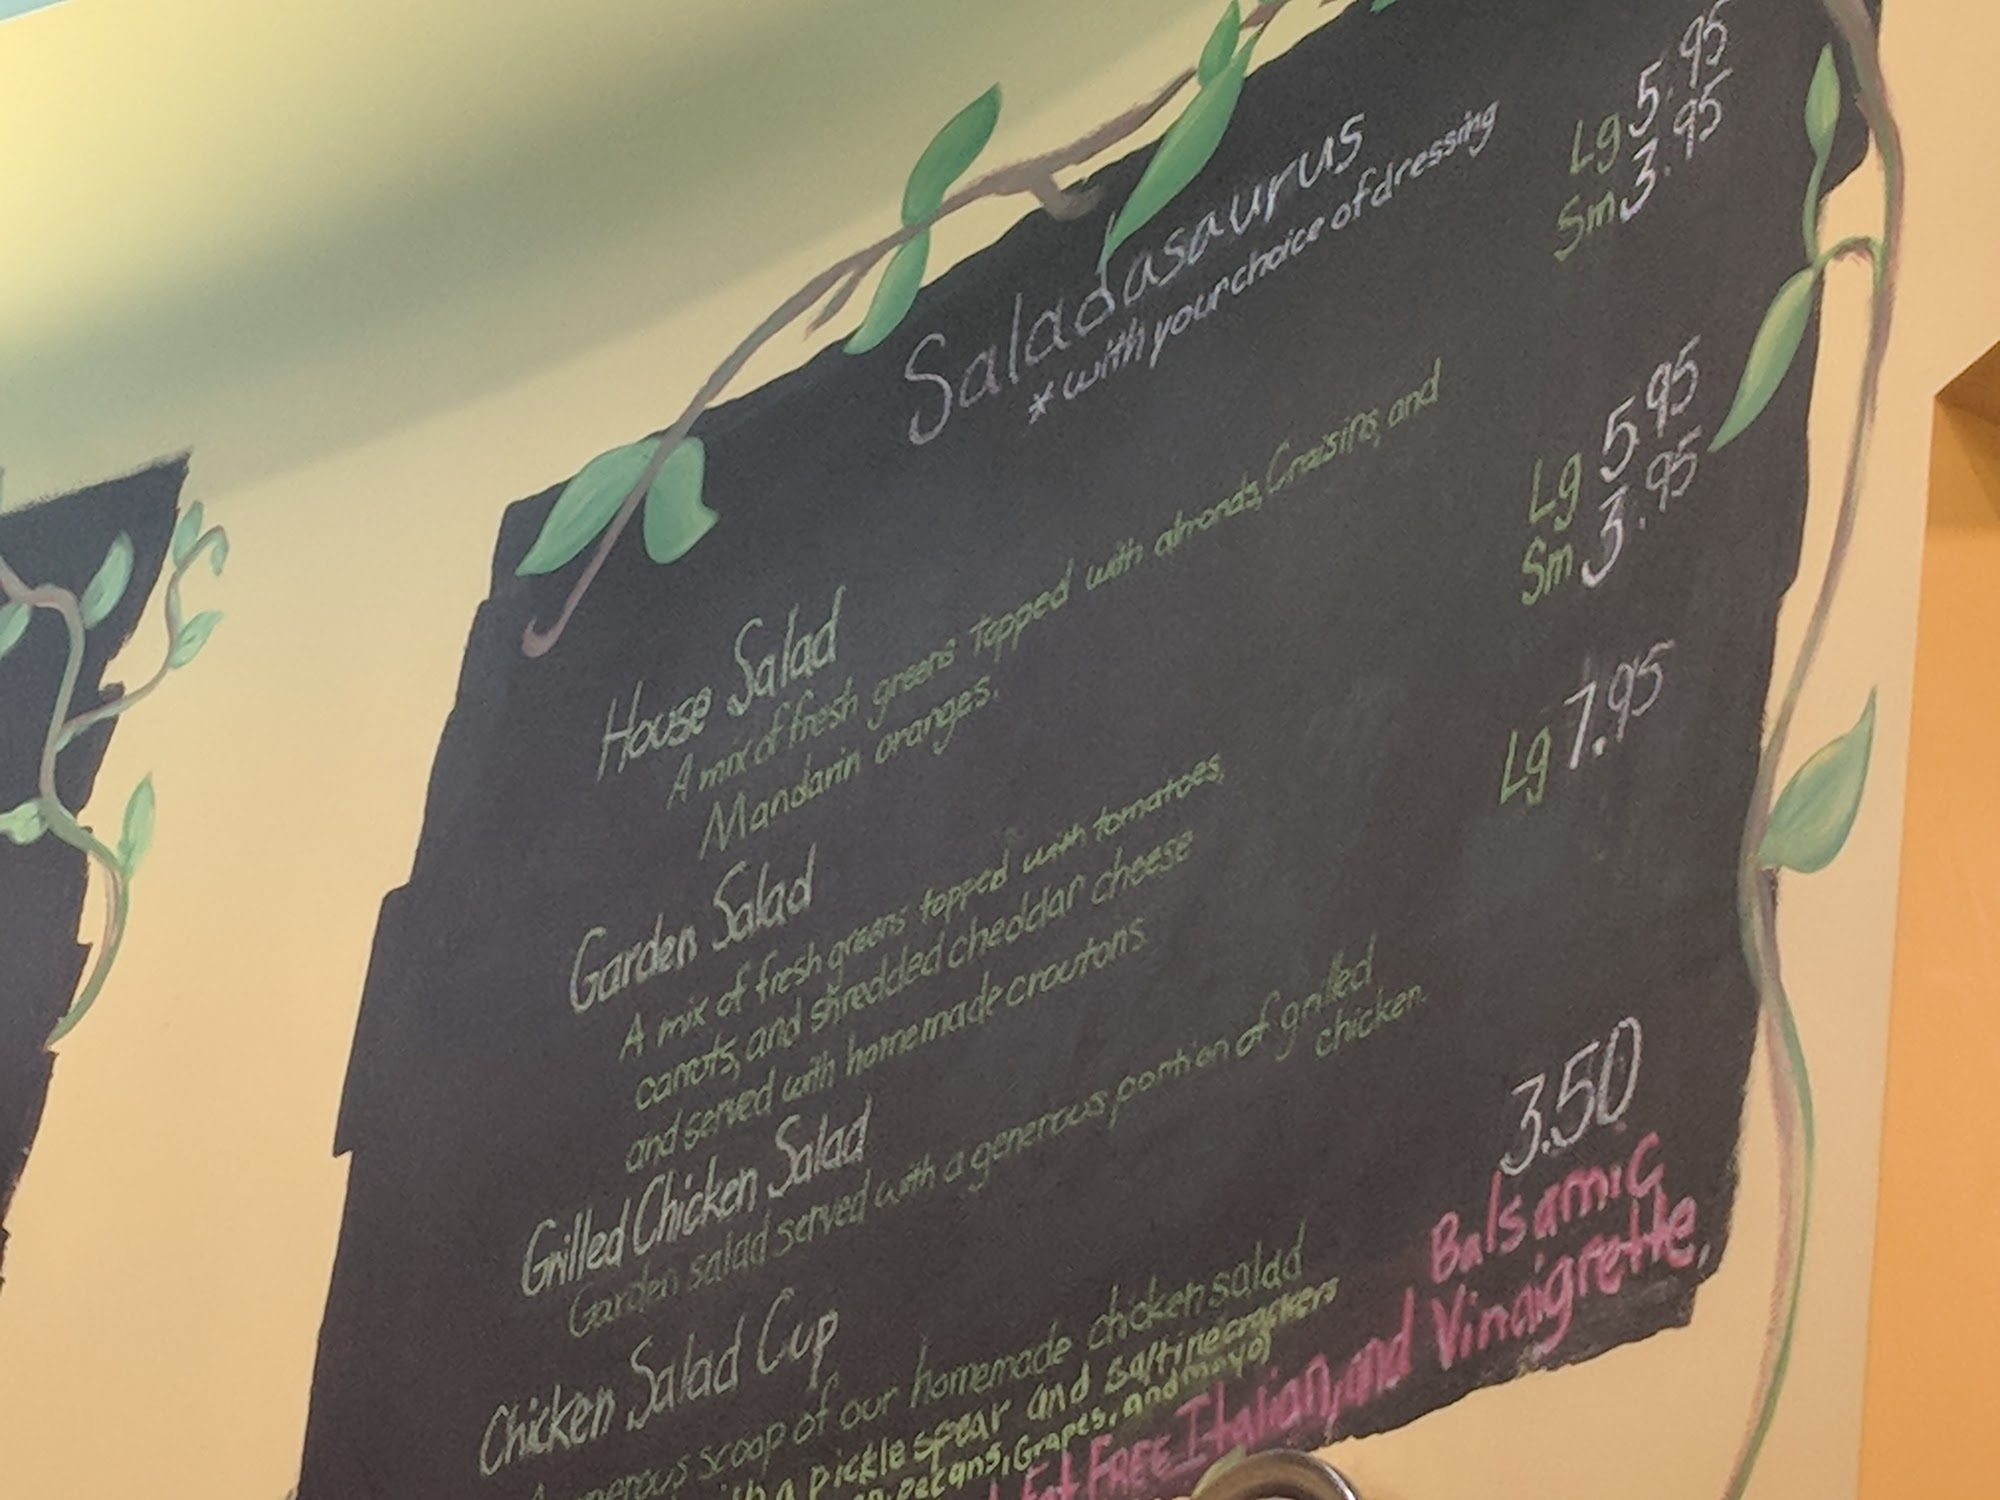 Saladasaurus
*with your choice of dressing
House Salad
Lg 5.95
Sm 3.95
A mix of fresh greens Topped with almonds, Craisins, and
Mandarin oranges.
Garden Salad
Lg 5.95
Sm 3.95
A mix of fresh greens topped with tomatoes,
carrots, and shredded cheddar cheese
and served with homemade croutons.
Grilled Chicken Salad
Lg 7.95
Garden salad served with a generous portion of grilled
chicken.
Chicken Salad Cup
3.50
scoop of our homemade chicken salad
a pickle spear and saltine crackers
pecans, Grapes, and mayo)
Balsamic
Fat FREE Italian, and Vinaigrette,